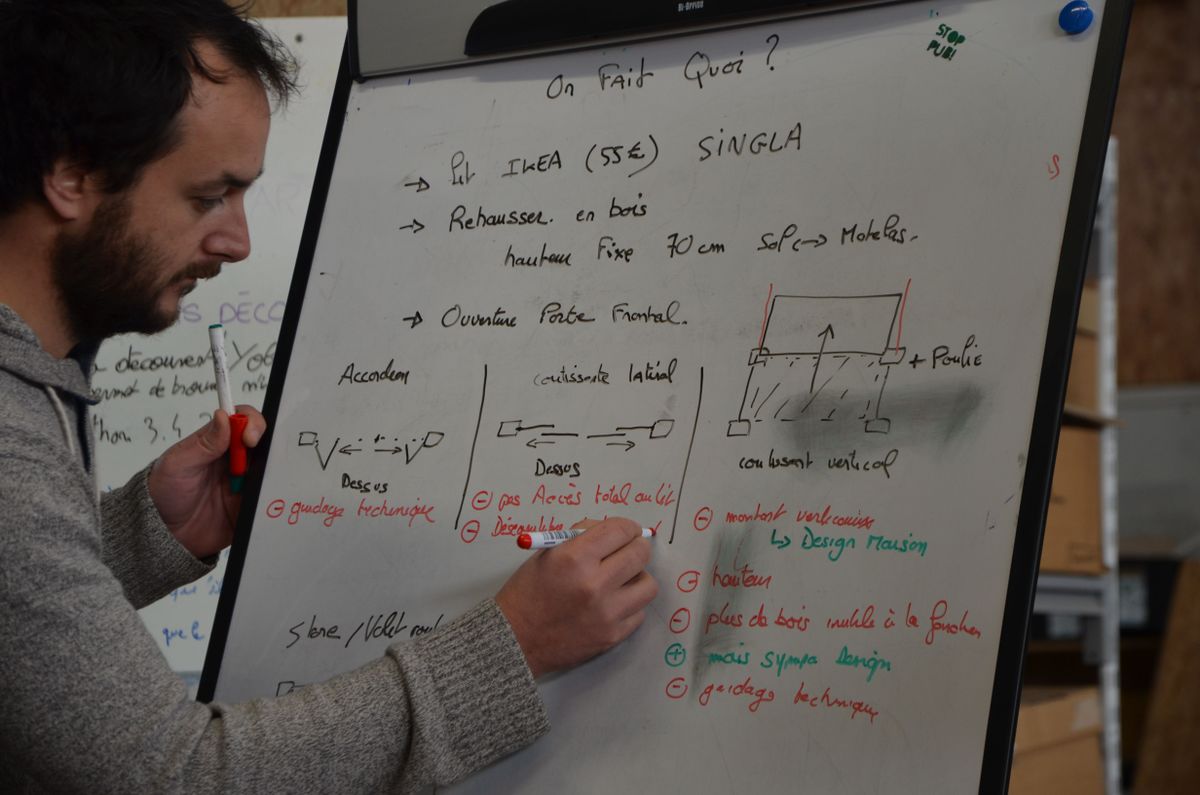 Bi-Office
STOP
PUB!
On Fait Quoi ?
→ Lit IKEA (55€) SiNGLA
→ Rehausser. en bois
hauteur Fixe 70 cm Sol → Matelas.
→ Ouverture Porte Frontal.
+ Poulie
Accordeon
coulissante latéral
Dessus
Dessus
coulissant vertical
⊖ guidage technique
⊖ pas Accès total au lit
⊖ Déséquilibre
⊖ montant
↳ Design Maison
⊖ hauteur
⊖ plus de bois inutile à la
⊕ mais sympa Design
⊖ guidage technique
Store / Volet
S DÉCO
decouvert
de
3.4
que le